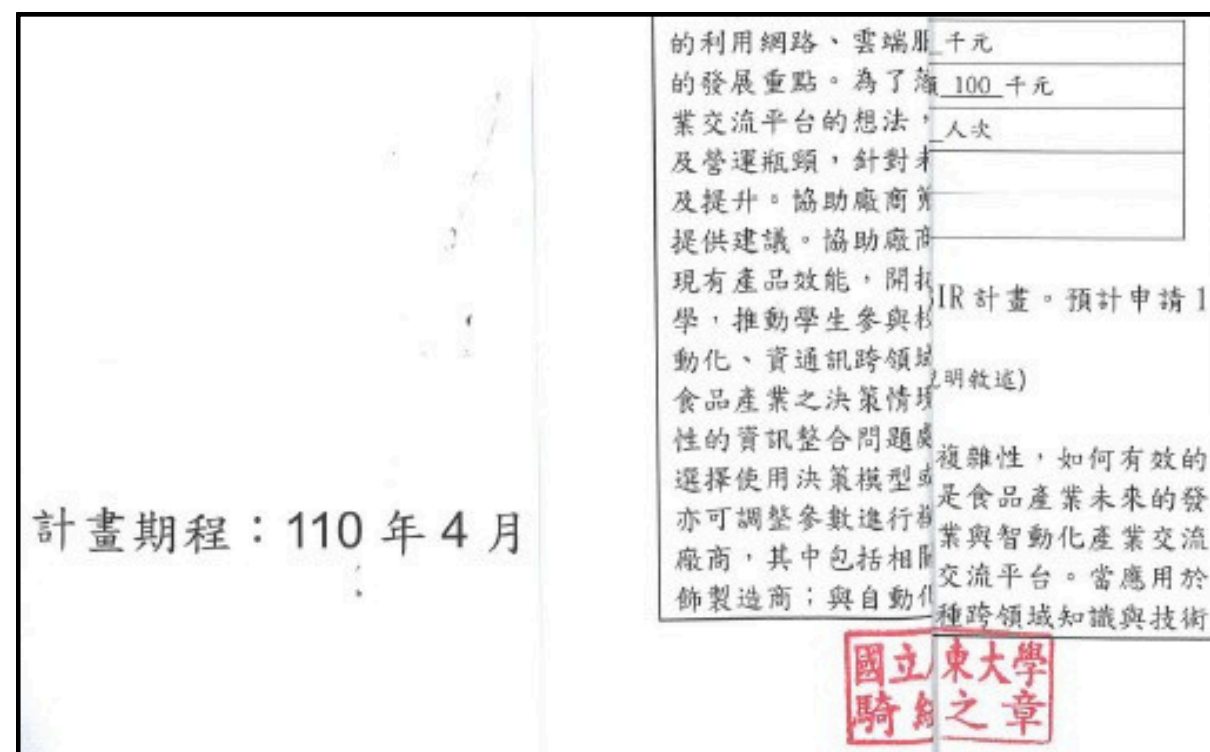 計畫期程：110 年 4 月
的利用網路、雲端服
的發展重點。為了落
業交流平台的想法，
及營運瓶頸，針對未
及提升。協助廠商
提供建議。協助廠商
現有產品效能，開拓
學，推動學生參與校
動化、資通訊跨領域
食品產業之決策情境
性的資訊整合問題處
選擇使用決策模型或
亦可調整參數進行模
廠商，其中包括相關
飾製造商；與自動化
千元
額 100 千元
人次
IR 計畫。預計申請 1
明敘述)
複雜性，如何有效的
是食品產業未來的發
業與智動化產業交流
交流平台。當應用於
種跨領域知識與技術
國立 東大學
騎縫之章